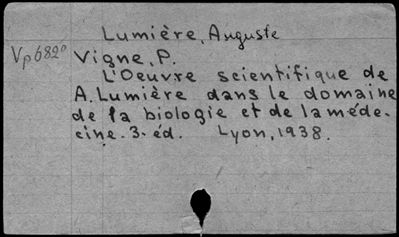 Lumière, Auguste
Vp682⁰ Vigne, P.
L'Oeuvre scientifique de
A. Lumière dans le domaine
de la biologie et de la méde-
cine. 3. éd. Lyon, 1938.